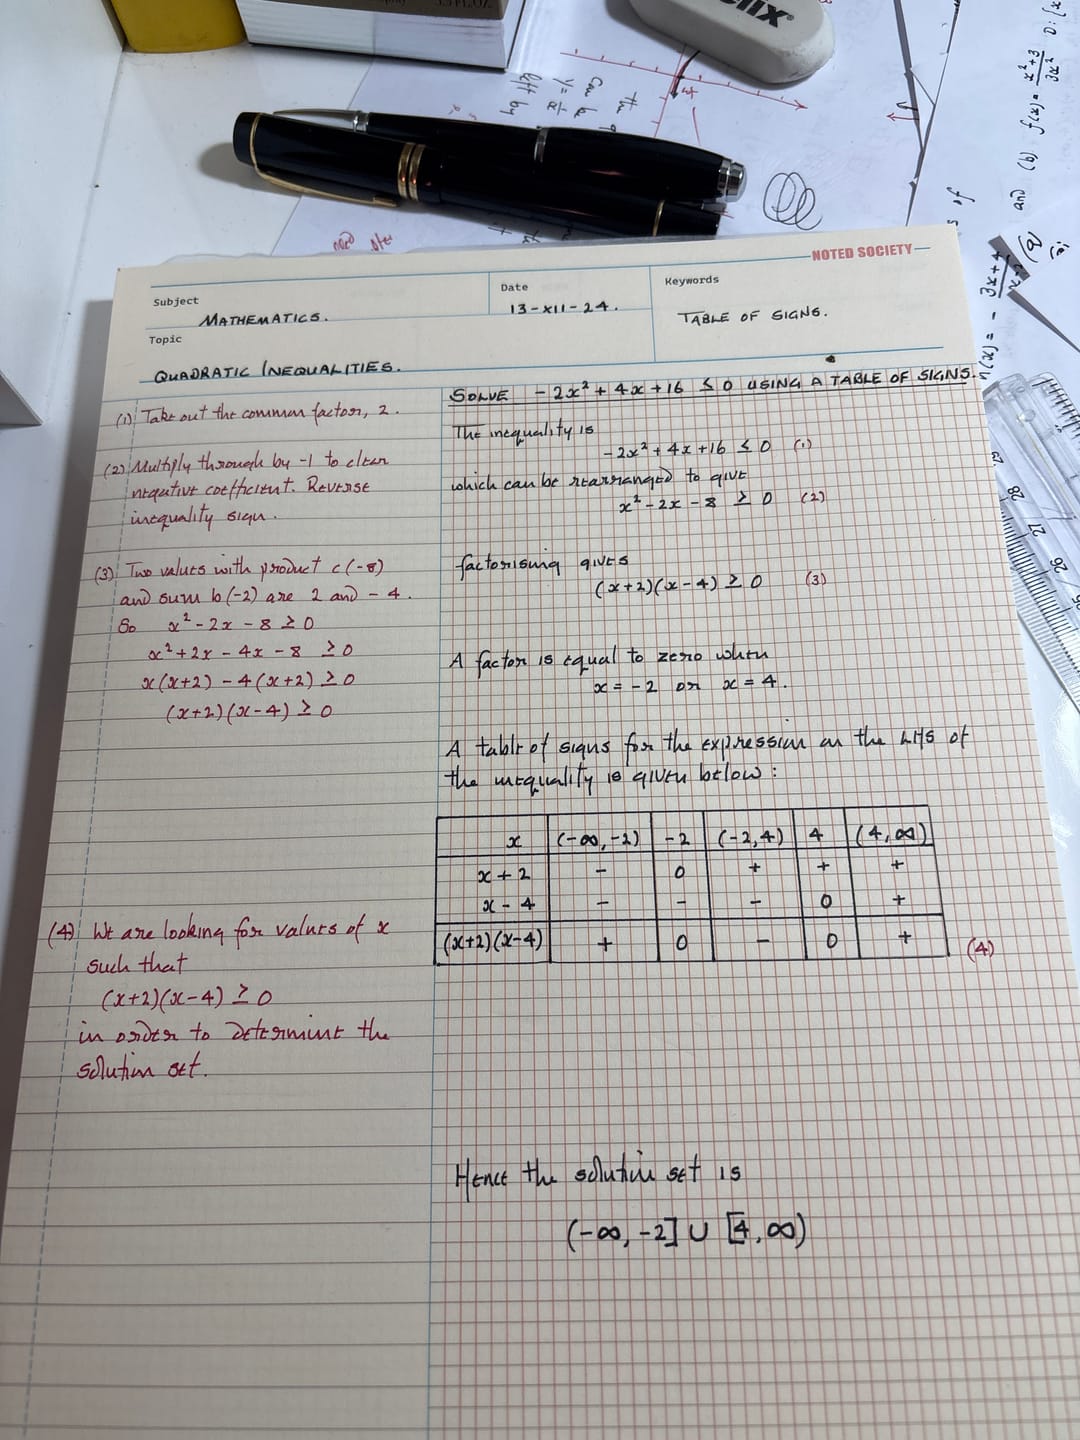 3.5 FL.OZ
elix®
Can be
y = 1/x
left by
need
and (b) f(x) = x² + 3 / 3x²
NOTED SOCIETY
Subject
MATHEMATICS.
Date
13-XII-24.
Keywords
TABLE OF SIGNS.
Topic
QUADRATIC INEQUALITIES.
(1) Take out the common factor, 2.
(2) Multiply through by -1 to clear
negative coefficient. Reverse
inequality sign.
(3) Two values with product c (-8)
and sum b (-2) are 2 and -4.
So x² - 2x - 8 ≥ 0
x² + 2x - 4x - 8 ≥ 0
x(x+2) - 4(x+2) ≥ 0
(x+2)(x-4) ≥ 0
(4) We are looking for values of x
such that
(x+2)(x-4) ≥ 0
in order to determine the
solution set.
SOLVE -2x² + 4x + 16 ≤ 0 USING A TABLE OF SIGNS.
The inequality is
-2x² + 4x + 16 ≤ 0 (1)
which can be rearranged to give
x² - 2x - 8 ≥ 0 (2)
factorising gives
(x+2)(x-4) ≥ 0 (3)
A factor is equal to zero when
x = -2 or x = 4.
A table of signs for the expression on the LHS of
the inequality is given below:
x (-∞,-2) -2 (-2,4) 4 (4,∞)
x+2 - 0 + + +
x-4 - - - 0 +
(x+2)(x-4) + 0 - 0 + (4)
Hence the solution set is
(-∞,-2] ∪ [4,∞)
28
27
26